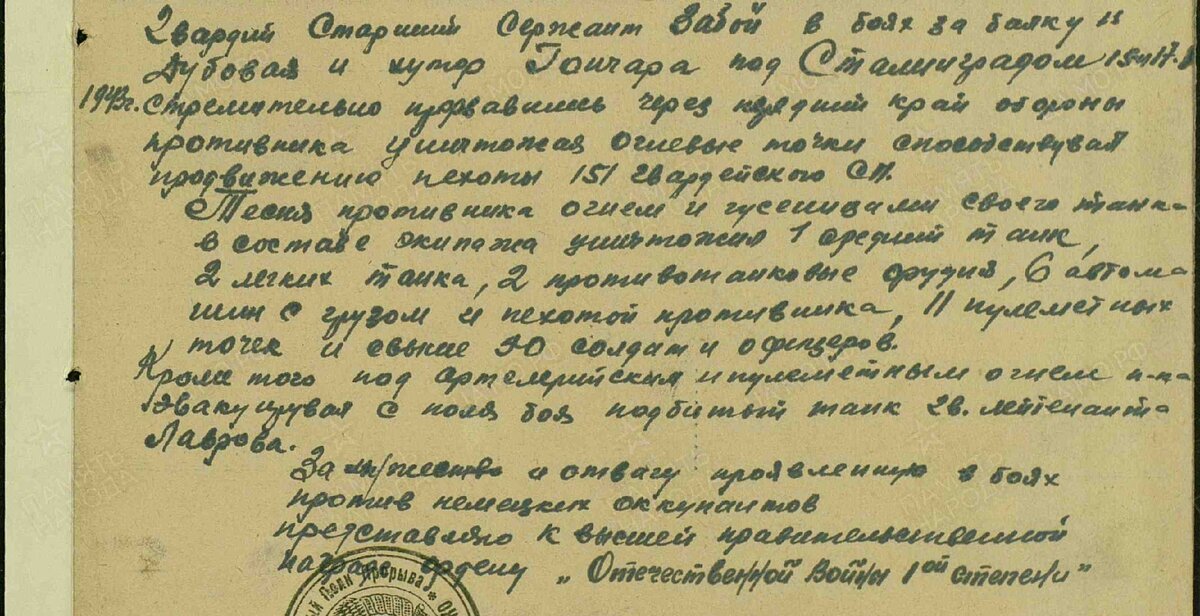 Гвардии Старший Сержант Забой в боях за балку
Дубовая и хутор Гончара под Сталинградом 15 и 17.1
1943г. стремительно прорвавшись через передний край обороны
противника уничтожая огневые точки способствовал
продвижению пехоты 151 гвардейского СП.
Тесня противника огнем и гусеницами своего танка
в составе экипажа уничтожил 1 средний танк,
2 легких танка, 2 противотанковые орудия, 6 автома
шин с грузом и пехотой противника, 11 пулеметных
точек и свыше 90 солдат и офицеров.
Кроме того под артелерийским и пулеметным огнем п-ка
эвакуировал с поля боя подбитый танк гв. лейтенанта
Лаврова.
За мужество и отвагу проявленную в боях
против немецких оккупантов
представляю к высшей правительственной
награде ордену „Отечественной Войны 1ой степени"
Полк Прорыва